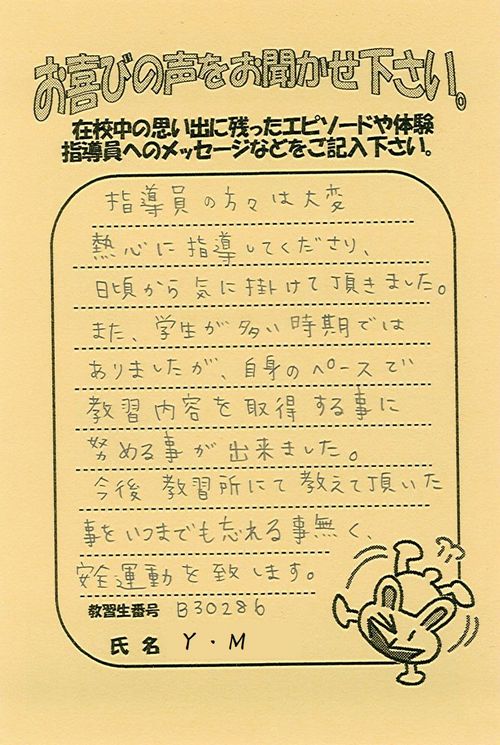 お喜びの声をお聞かせ下さい。
在校中の思い出に残ったエピソードや体験
指導員へのメッセージなどをご記入下さい。
指導員の方々は大変
熱心に指導してくださり、
日頃から気に掛けて頂きました。
また、学生が多い時期では
ありましたが、自身のペースで
教習内容を取得する事に
努める事が出来ました。
今後教習所にて教えて頂いた
事をいつまでも忘れる事無く、
安全運動を致します。
教習生番号 B30286
氏名 Y・M